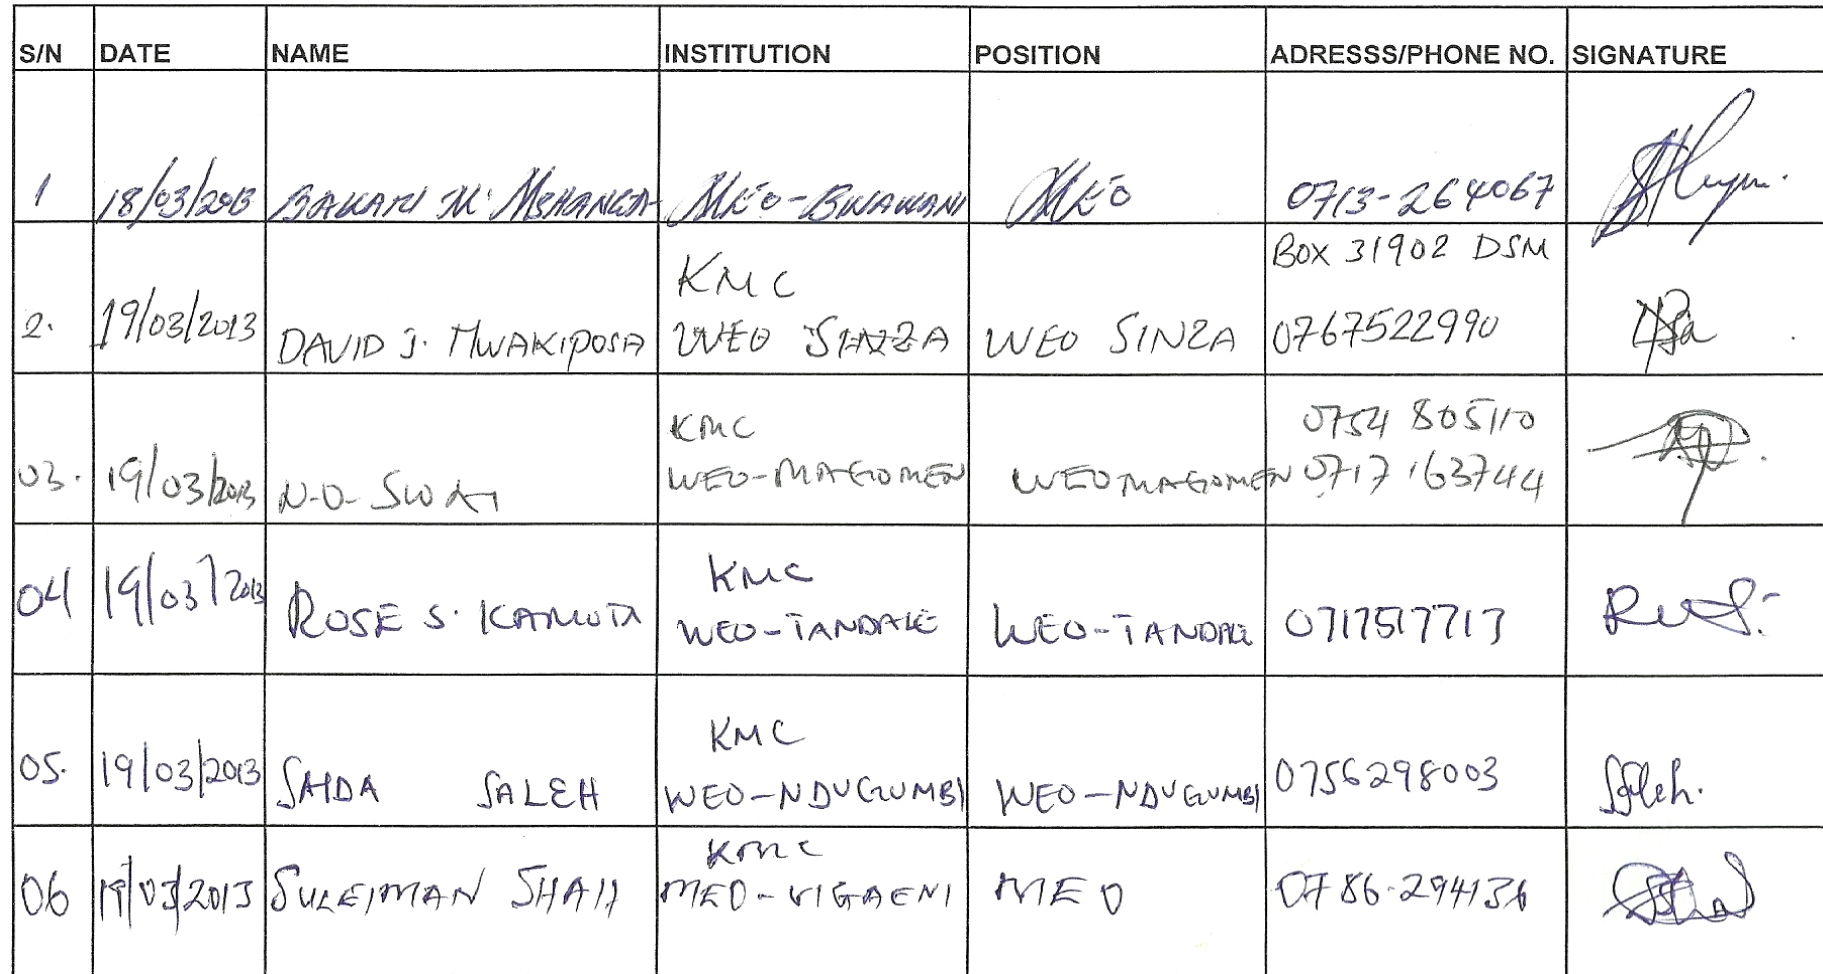 S/N DATE NAME INSTITUTION POSITION ADRESSS/PHONE NO. SIGNATURE
1 18/03/2013 BAKARI M. MSHANGA MEO-BWAWANI MEO 0713-264067
2. 19/03/2013 DAVID J. MWAKIPOSA KMC WEO SINZA WEO SINZA BOX 31902 DSM 0767522990
03. 19/03/2013 N.O. KMC WEO-MAGOMEN WEO MAGOMEN 0754 805110 0717 163744
04 19/03/2013 ROSE S. KMC WEO-TANDALE WEO-TANDALE 0717517717
05. 19/03/2013 SAIDA SALEH KMC WEO-NDUGUMBI WEO-NDUGUMBI 0756298003 Saleh.
06 19/03/2013 SULEIMAN KMC MEO-VIGAENI MEO 0786-294136